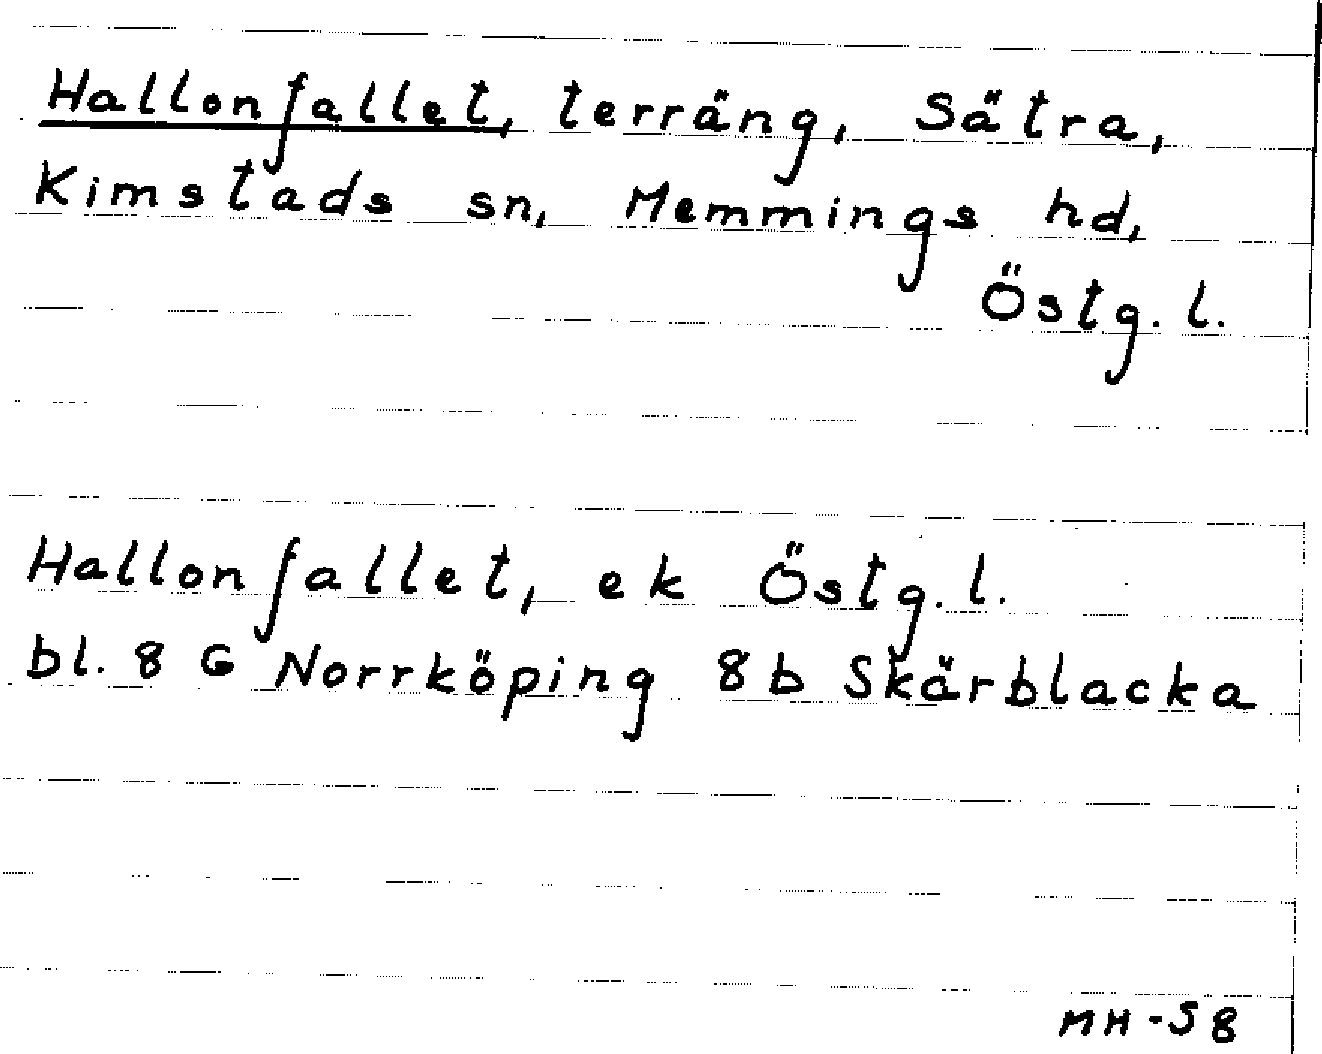 Hallonfallet, terräng, Sätra,
Kimstads sn, Memmings hd,
Östg. l.
Hallonfallet, ek Östg. l.
bl. 8 G Norrköping 8 b Skärblacka
MH-58